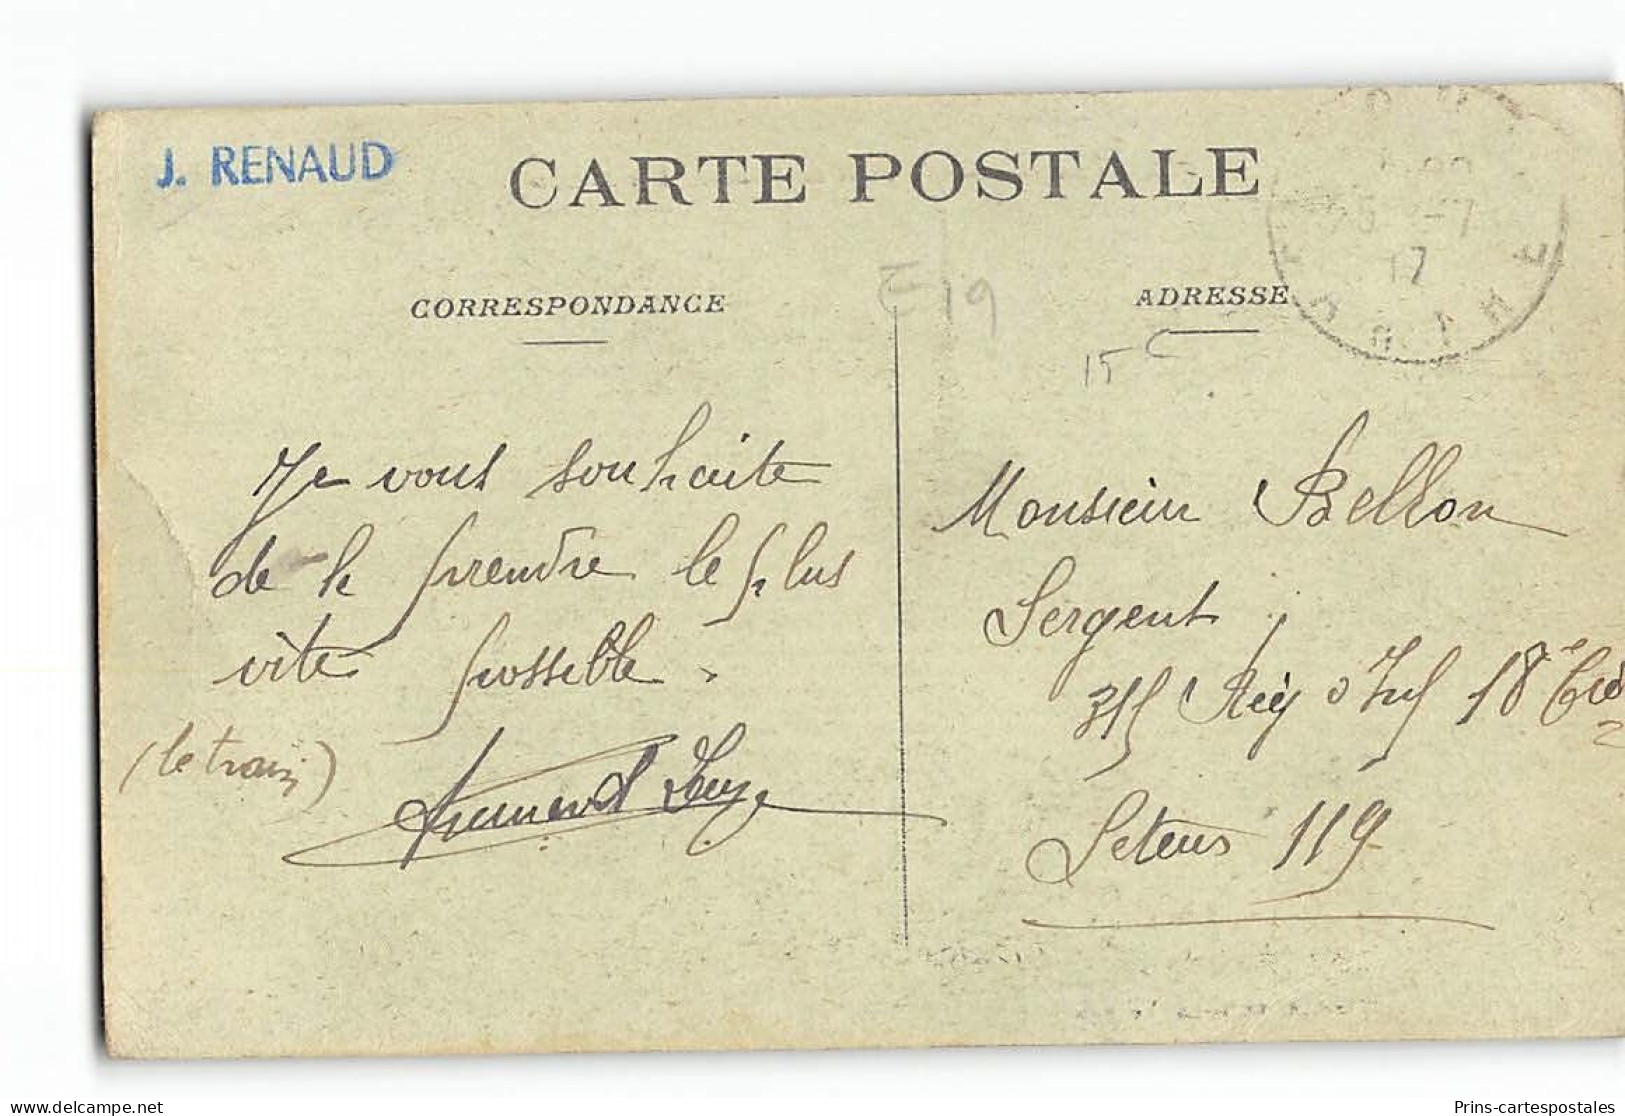 J. RENAUD
CARTE POSTALE
CORRESPONDANCE
ADRESSE
E 19
15 c
17
Je vous souhaite
de le prendre le plus
vite possible.
(le train)
Monsieur Bellon
Sergent
315 Rég d'Inf 18e Cie
Secteur 119
Prins-cartespostales
delcampe.net